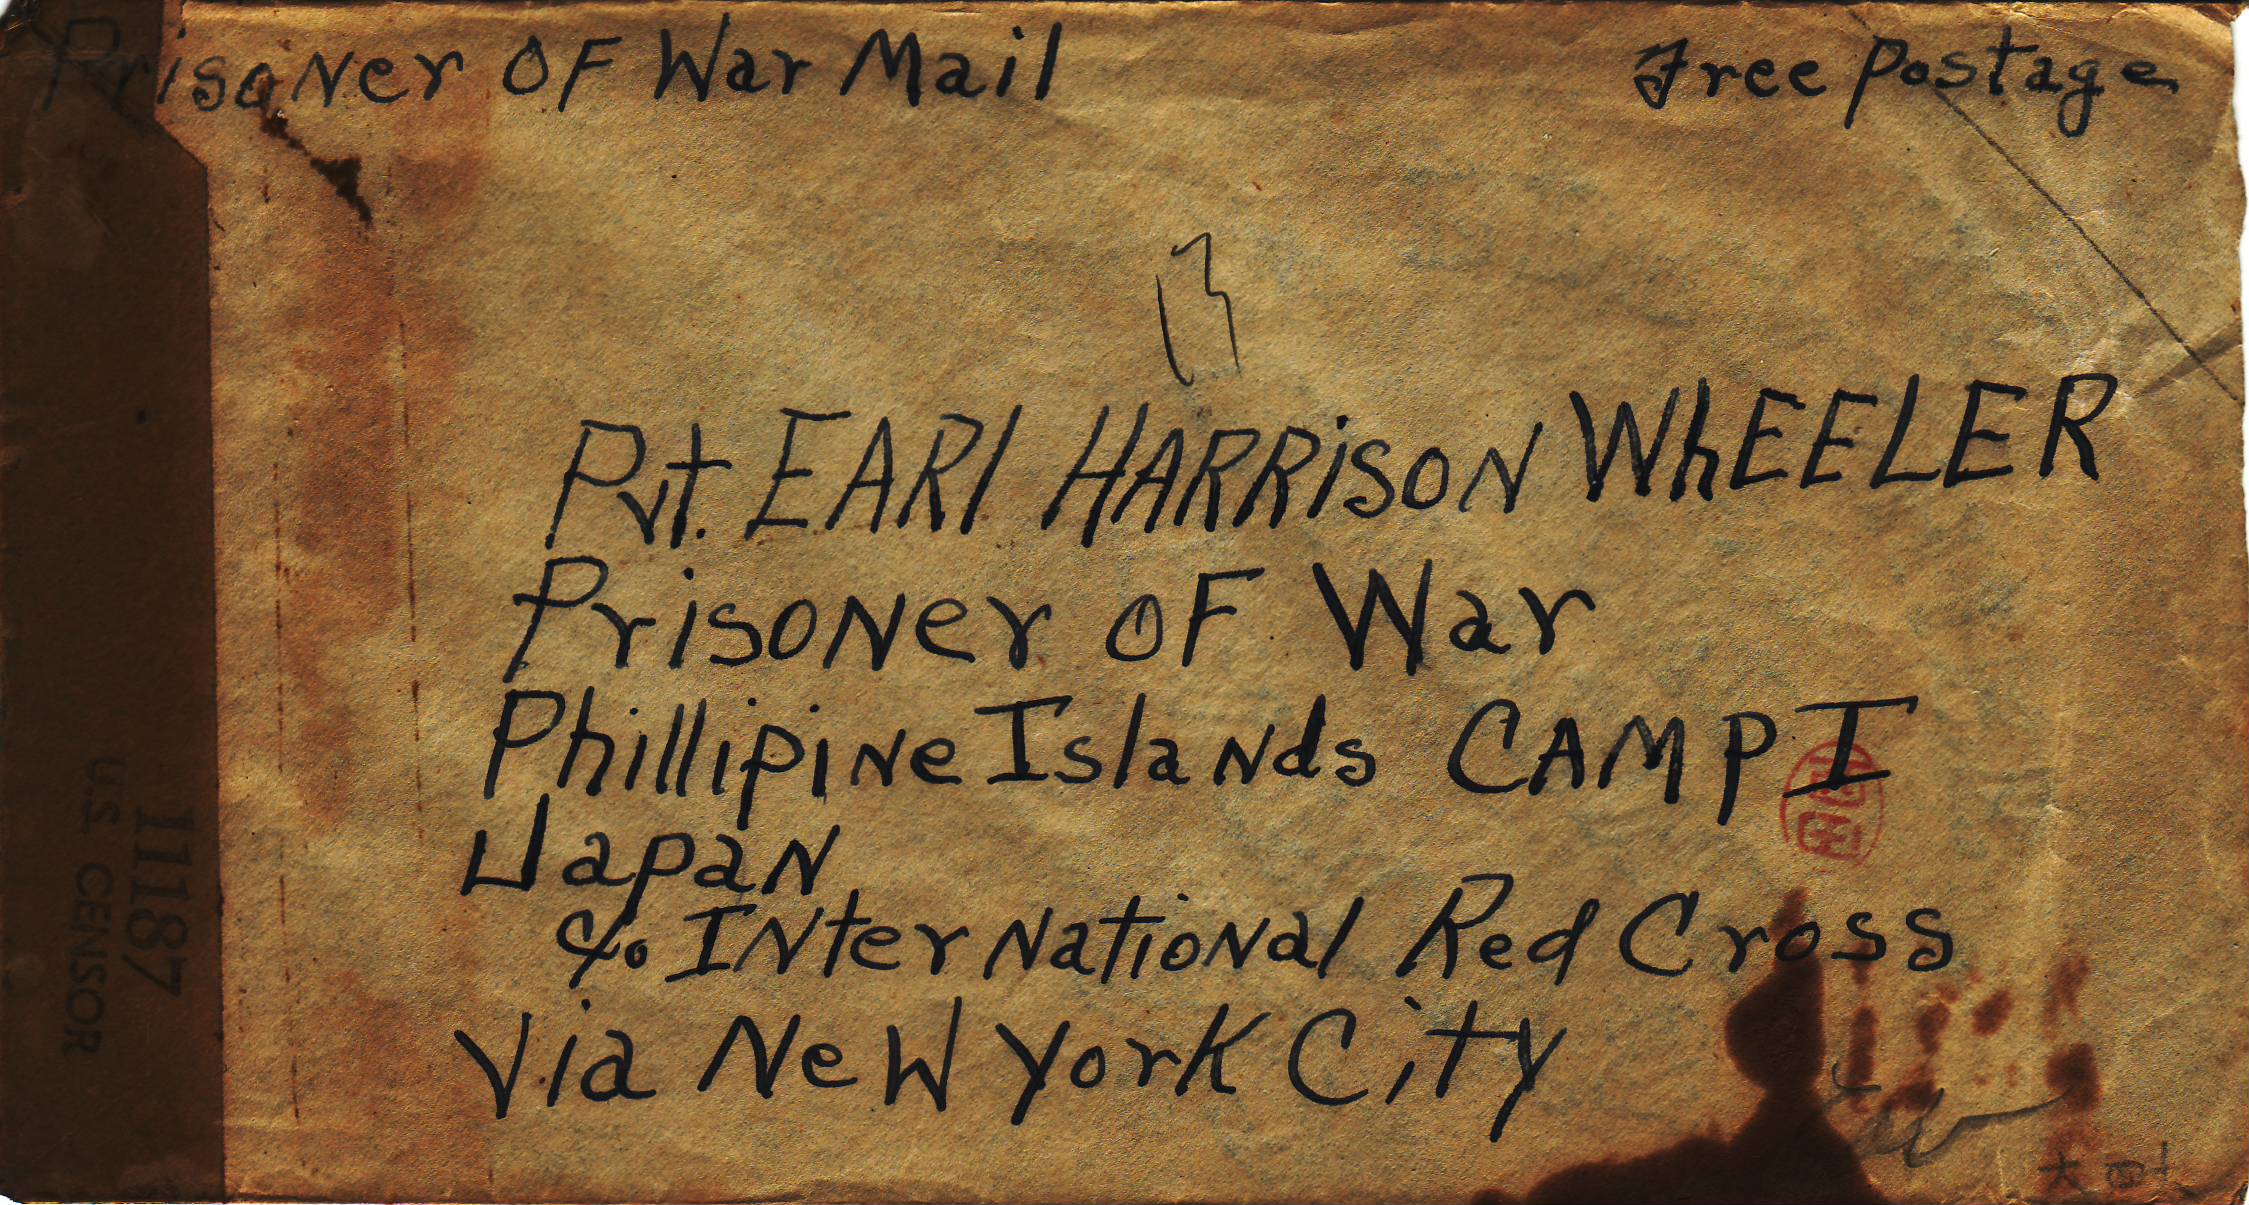 Prisoner OF War Mail
Free Postage
Pvt. EARl HARRiSON WhEELER
Prisoner OF War
Phillipine Islands CAMP I
Japan
c/o International Red Cross
Via New York City
11187
U.S. CENSOR